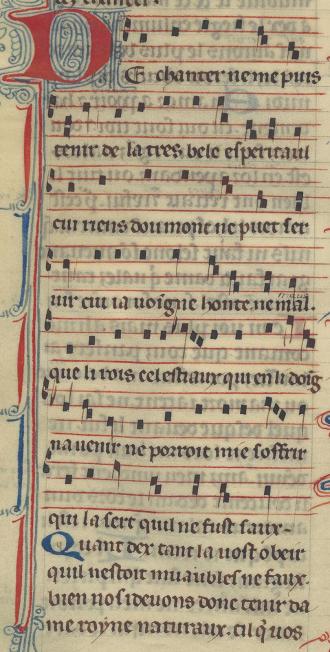 DE chanter ne me puis
tenir de la tres bele esperitaul
cui riens dou mont ne puet ser
uir cui ia uoigne honte ne mal.
que li rois celestiaux qui en li doig
na uenir ne porroit mie soffrir
qui la sert quil ne fust saux.
Quant dex tant la uost obeir
quil nestoit muaubles ne faux.
bien nos i deuons donc tenir da
me royne naturaux. cil q̃ uos